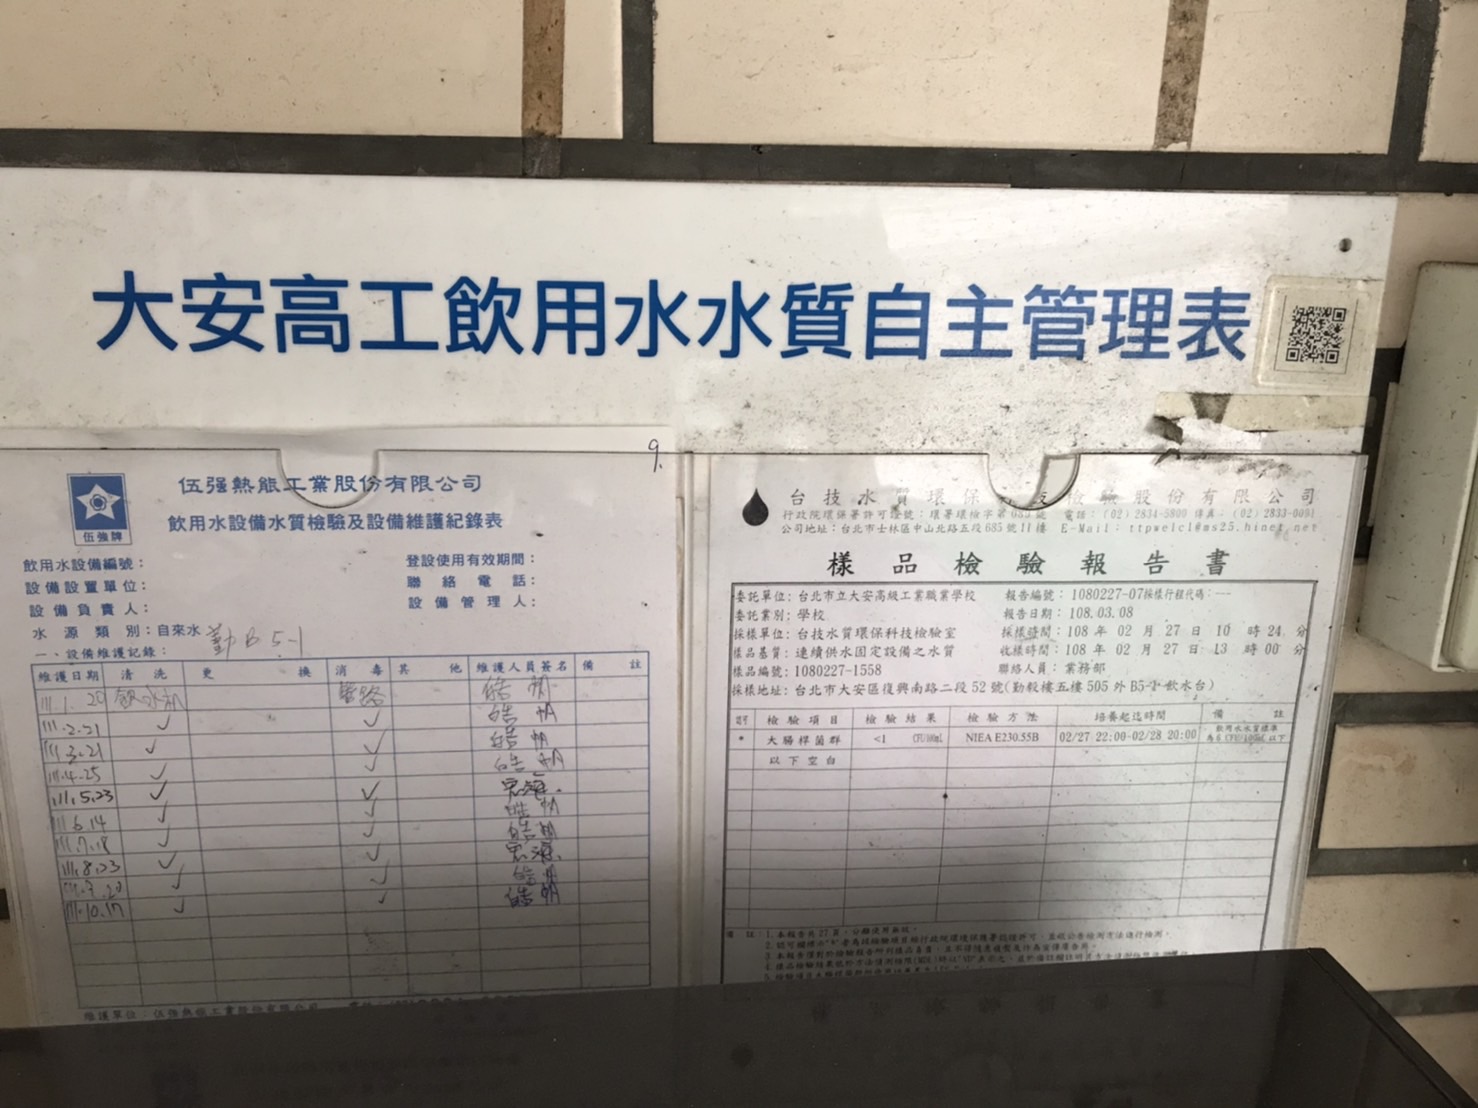 大安高工飲用水水質自主管理表
9.
伍強牌
伍强熱能工業股份有限公司
飲用水設備水質檢驗及設備維護紀錄表
飲用水設備編號：
登設使用有效期間：
設備設置單位：
聯絡電話：
設備負責人：
設備管理人：
水源類別：自來水 勤B5-1
一、設備維護記錄：
維護日期 清洗 更換 消毒 其他 維護人員簽名 備註
111.1.20 飲水机 管路 皓帆
111.2.21 ✓ ✓ 皓帆
111.3.21 ✓ ✓ 皓帆
111.4.25 ✓ ✓ 皓帆
111.5.23 ✓ ✓
111.6.14 ✓ ✓ 皓帆
111.7.18 ✓ ✓ 皓帆
111.8.23 ✓ ✓
111.9.20 ✓ ✓ 皓帆
111.10.17 ✓ ✓ 皓帆
維護單位：伍強熱能工業股份有限公司
台技水質環保科技檢驗股份有限公司
行政院環保署許可證號：環署環檢字第 號 電話：(02)2834-5800 傳真：(02)2833-0051
公司地址：台北市士林區中山北路五段685號11樓 E-Mail：ttpwelc1@ms25.hinet.net
樣品檢驗報告書
委託單位：台北市立大安高級工業職業學校 報告編號：1080227-07採樣行程代碼：---
委託業別：學校 報告日期：108.03.08
採樣單位：台技水質環保科技檢驗室 採樣時間：108年02月27日10時24分
樣品基質：連續供水固定設備之水質 收樣時間：108年02月27日13時00分
樣品編號：1080227-1558 聯絡人員：業務部
採樣地址：台北市大安區復興南路二段52號(勤毅樓五樓505外 B5-1 飲水台)
認可 檢驗項目 檢驗結果 檢驗方法 培養起迄時間 備註
* 大腸桿菌群 <1 CFU/100mL NIEA E230.55B 02/27 22:00-02/28 20:00 飲用水水質標準為6 CFU/100mL以下
以下空白
備註：1.本報告共27頁，分離使用無效。